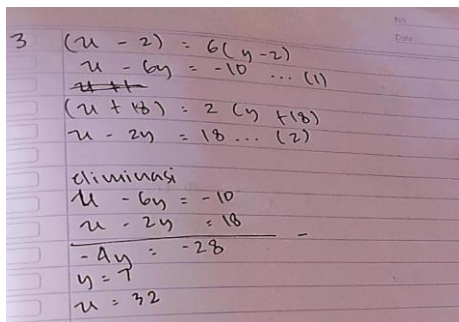 No.
Date:
3 (x - 2) = 6(y - 2)
x - 6y = -10 ... (1)
(x + 18) = 2 (y + 18)
x - 2y = 18 ... (2)
eliminasi
x - 6y = -10
x - 2y = 18
-
-4y = -28
y = 7
x = 32